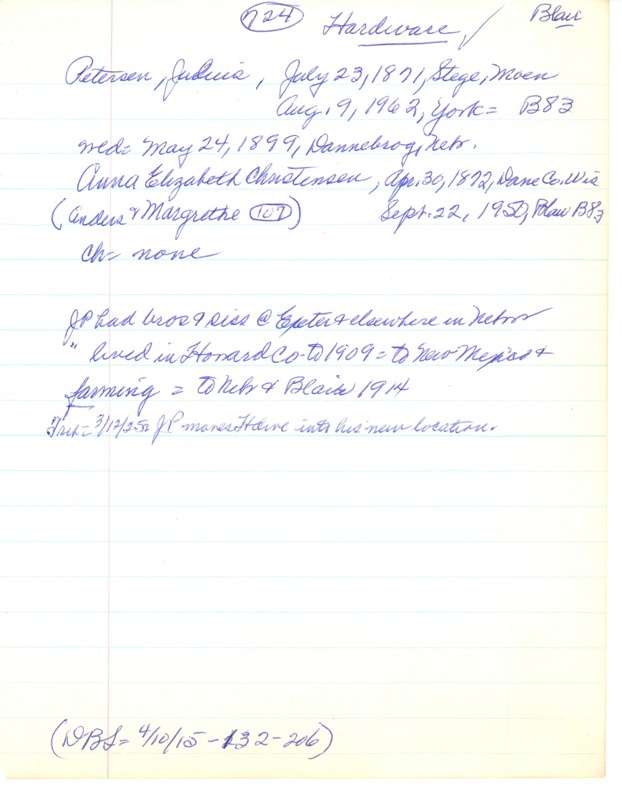 724 Hardware ✓ Blair
Petersen, Julius, July 23, 1871, Stege, Moen
Aug. 9, 1962, York = B83
wed = May 24, 1899, Dannebrog, Nebr.
Anna Elizabeth Christensen, Apr. 30, 1872, Dane Co. Wis
(Anders & Margrethe 107) Sept. 22, 1950, Blair B83
Ch = none
JP had bros & siss @ Exeter & elsewhere in Nebr
" lived in Howard Co - to 1909 = to New Mexico &
farming = to Nebr & Blair 1914
3/12/25 = JP moves Hdwe into his new location.
(DBS = 4/10/15 - 132 - 206)